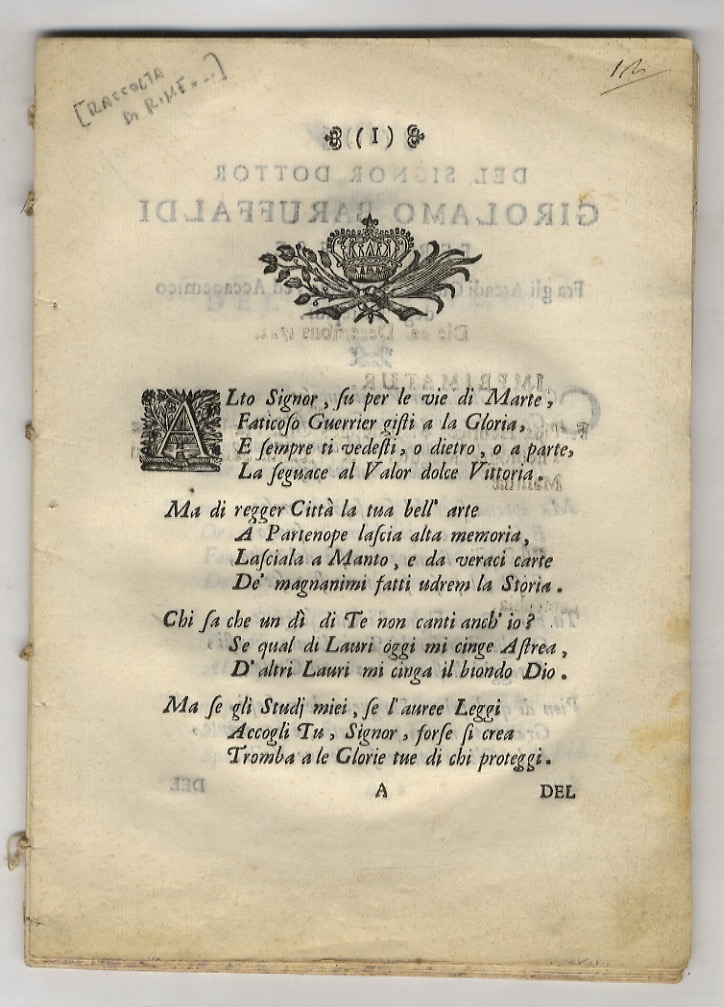 [RACCOLTA
DI RIME...]
(I)
ALto Signor, ſu per le vie di Marte,
Faticoſo Guerrier giſti a la Gloria,
E ſempre ti vedeſti, o dietro, o a parte,
La ſeguace al Valor dolce Vittoria.
Ma di regger Città la tua bell' arte
A Partenope laſcia alta memoria,
Laſciala a Manto, e da veraci carte
De' magnanimi fatti udrem la Storia.
Chi ſa che un dì di Te non canti anch' io?
Se qual di Lauri oggi mi cinge Aſtrea,
D' altri Lauri mi cinga il biondo Dio.
Ma ſe gli Studj miei, ſe l' auree Leggi
Accogli Tu, Signor, forſe ſi crea
Tromba a le Glorie tue di chi proteggi.
A DEL
DEL SIGNOR DOTTOR
GIROLAMO BARUFFALDI
IMPRIMATUR.
DEL